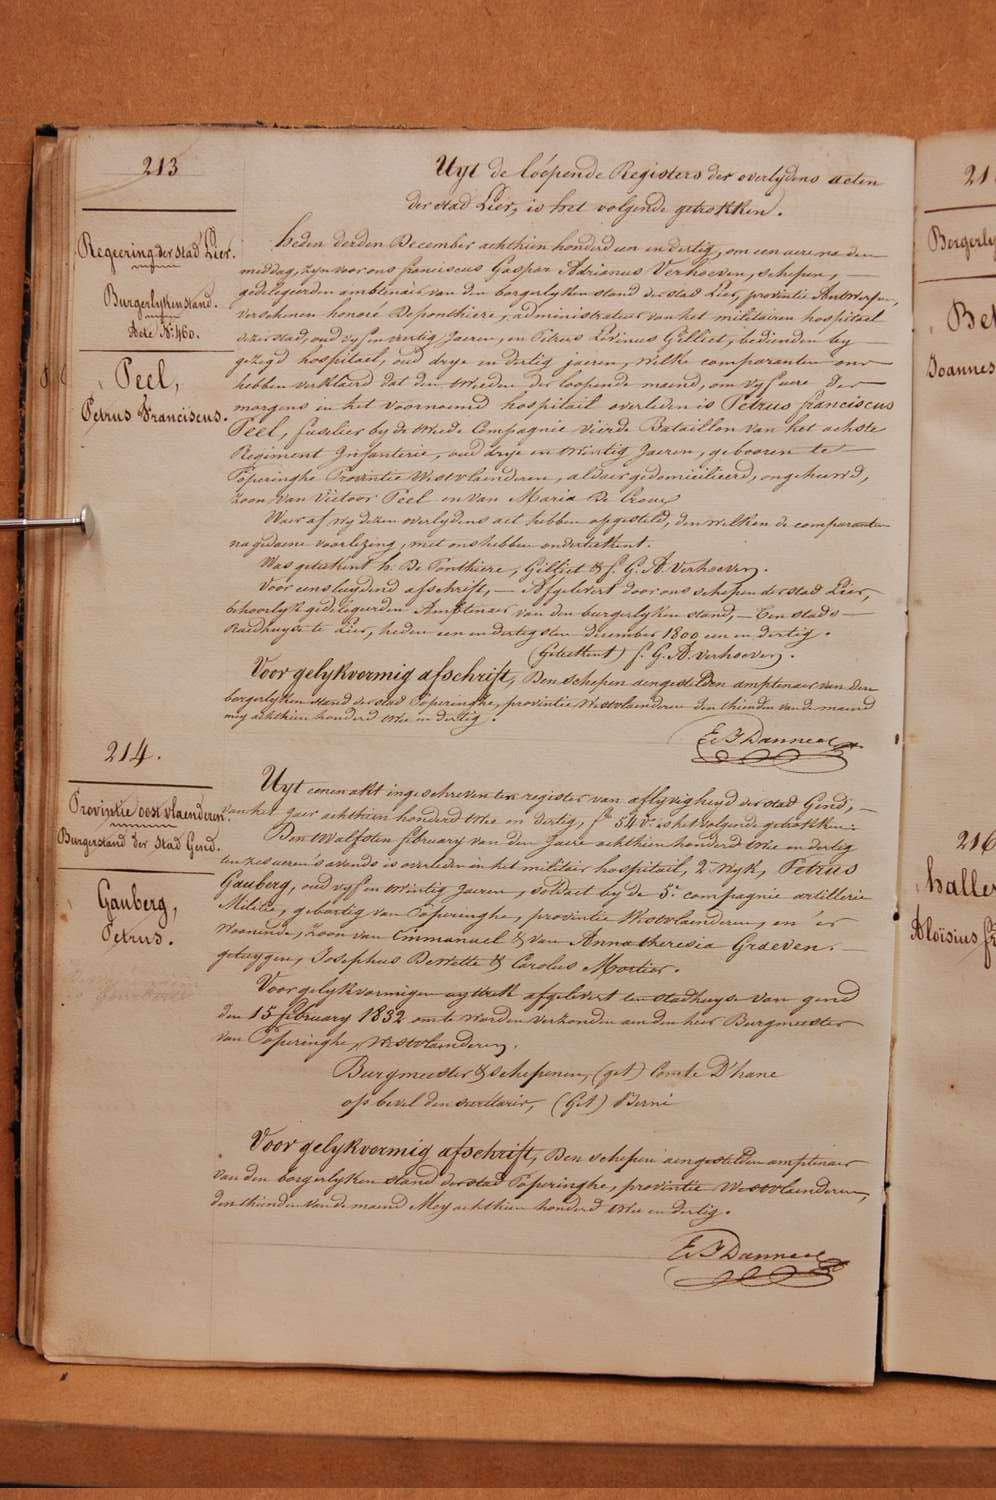 213
Regeering der stad Lier.
Burgerlyken stand.
Acte N° 460.
Peel,
Petrus Franciscus.
Uyt de loopende Registers der overlydens acten
der stad Lier, is het volgende getrokken.
heden derden December achthien honderd een en dertig, om een uere na den
middag, zyn voor ons franciscus Gaspar Adrianus Verhoeven, schepen,
gedelegeerden amblenair van den borgerlyken stand der stad Lier, provintie Antwerpen,
verschenen honoré Deponthiere, administrateur van het militairen hospitael
dezer stad, oud vyf en veertig Jaeren, en Petrus Livinus Gilliet, bedienden by
gezegd hospitael, oud drye en dertig jaeren, welke comparanten ons
hebben verklaerd dat den tweeden der loopende maend, om vyf uere des
morgens in het voornoemd hospitael overleden is Petrus franciscus
Peel, fuselier by de twede Compagnie vierde Bataillon van het achste
Regiment Infanterie, oud drye en twintig Jaeren, gebooren te
Poperinghe Provintie Westvlaenderen, aldaer gedomicilieerd, ongehuwd,
zoon van Victoor Peel en van Maria De Croux
Waer af wy dezen overlydens act hebben opgesteld, den welken de comparanten
na gedaene voorlezing, met ons hebben onderteekent.
Was geteekent h. De Ponthiere, Gilliet & f. G. A. Verhoeven.
Voor eensluydend afschrift, — Afgelevert door ons schepen der stad Lier,
behoorlyk gedelegeerden Amptenaer van den burgerlyken stand, — Ten stads
Raedhuyse te Lier, heden een en dertigsten december 1800 een en dertig.
(Geteekent) f. G. A. Verhoeven.
Voor gelykvormig afschrift, Den schepen aengestelden amptenaer van den
borgerlyken stand der stad Poperinghe, provintie Westvlaenderen den thienden van de maend
mey achthien honderd twee en dertig.
E. F. Danneel
214.
Provintie oost vlaenderen.
Burgerstand der stad Gend.
Gauberg,
Petrus.
Uyt eenen akt ingeschreven ten register van aflyvigheyd der stad Gend,
van het jaer achthien honderd twee en dertig, f° 54 v° is het volgende getrokken:
Den twalfsten february van den Jaere achthien honderd twee en dertig
ten zes ueren 's avonds is overleden in het militair hospitael, 2° Wyk, Petrus
Gauberg, oud vyf en twintig Jaeren, soldaet by de 5° compagnie artillerie
Militie, gebortig van Poperinghe, provintie Westvlaenderen, en er
Woonende, zoon van Emmanuel & van Anna theresia Graeven.
getuygen, Josephus Bertette & Carolus Mortier.
Voor gelykvormigen uyttrek afgelevert ten stadhuyse van gend
den 15 february 1832 om te worden verzonden aen den heer Burgmeester
van Poperinghe, Westvlaenderen.
Burgmeester & schepenen, (get) Comte D'hane
op bevel den secretaris, (Get) Berni
Voor gelykvormig afschrift, Den schepen aengestelden amptenaer
van den borgerlyken stand der stad Poperinghe, provintie Westvlaenderen,
den thienden van de maend Mey achthien honderd twee en dertig.
E. F. Danneel
21
Borgerly
Bel
Joannes
216
haller
Aloïsius